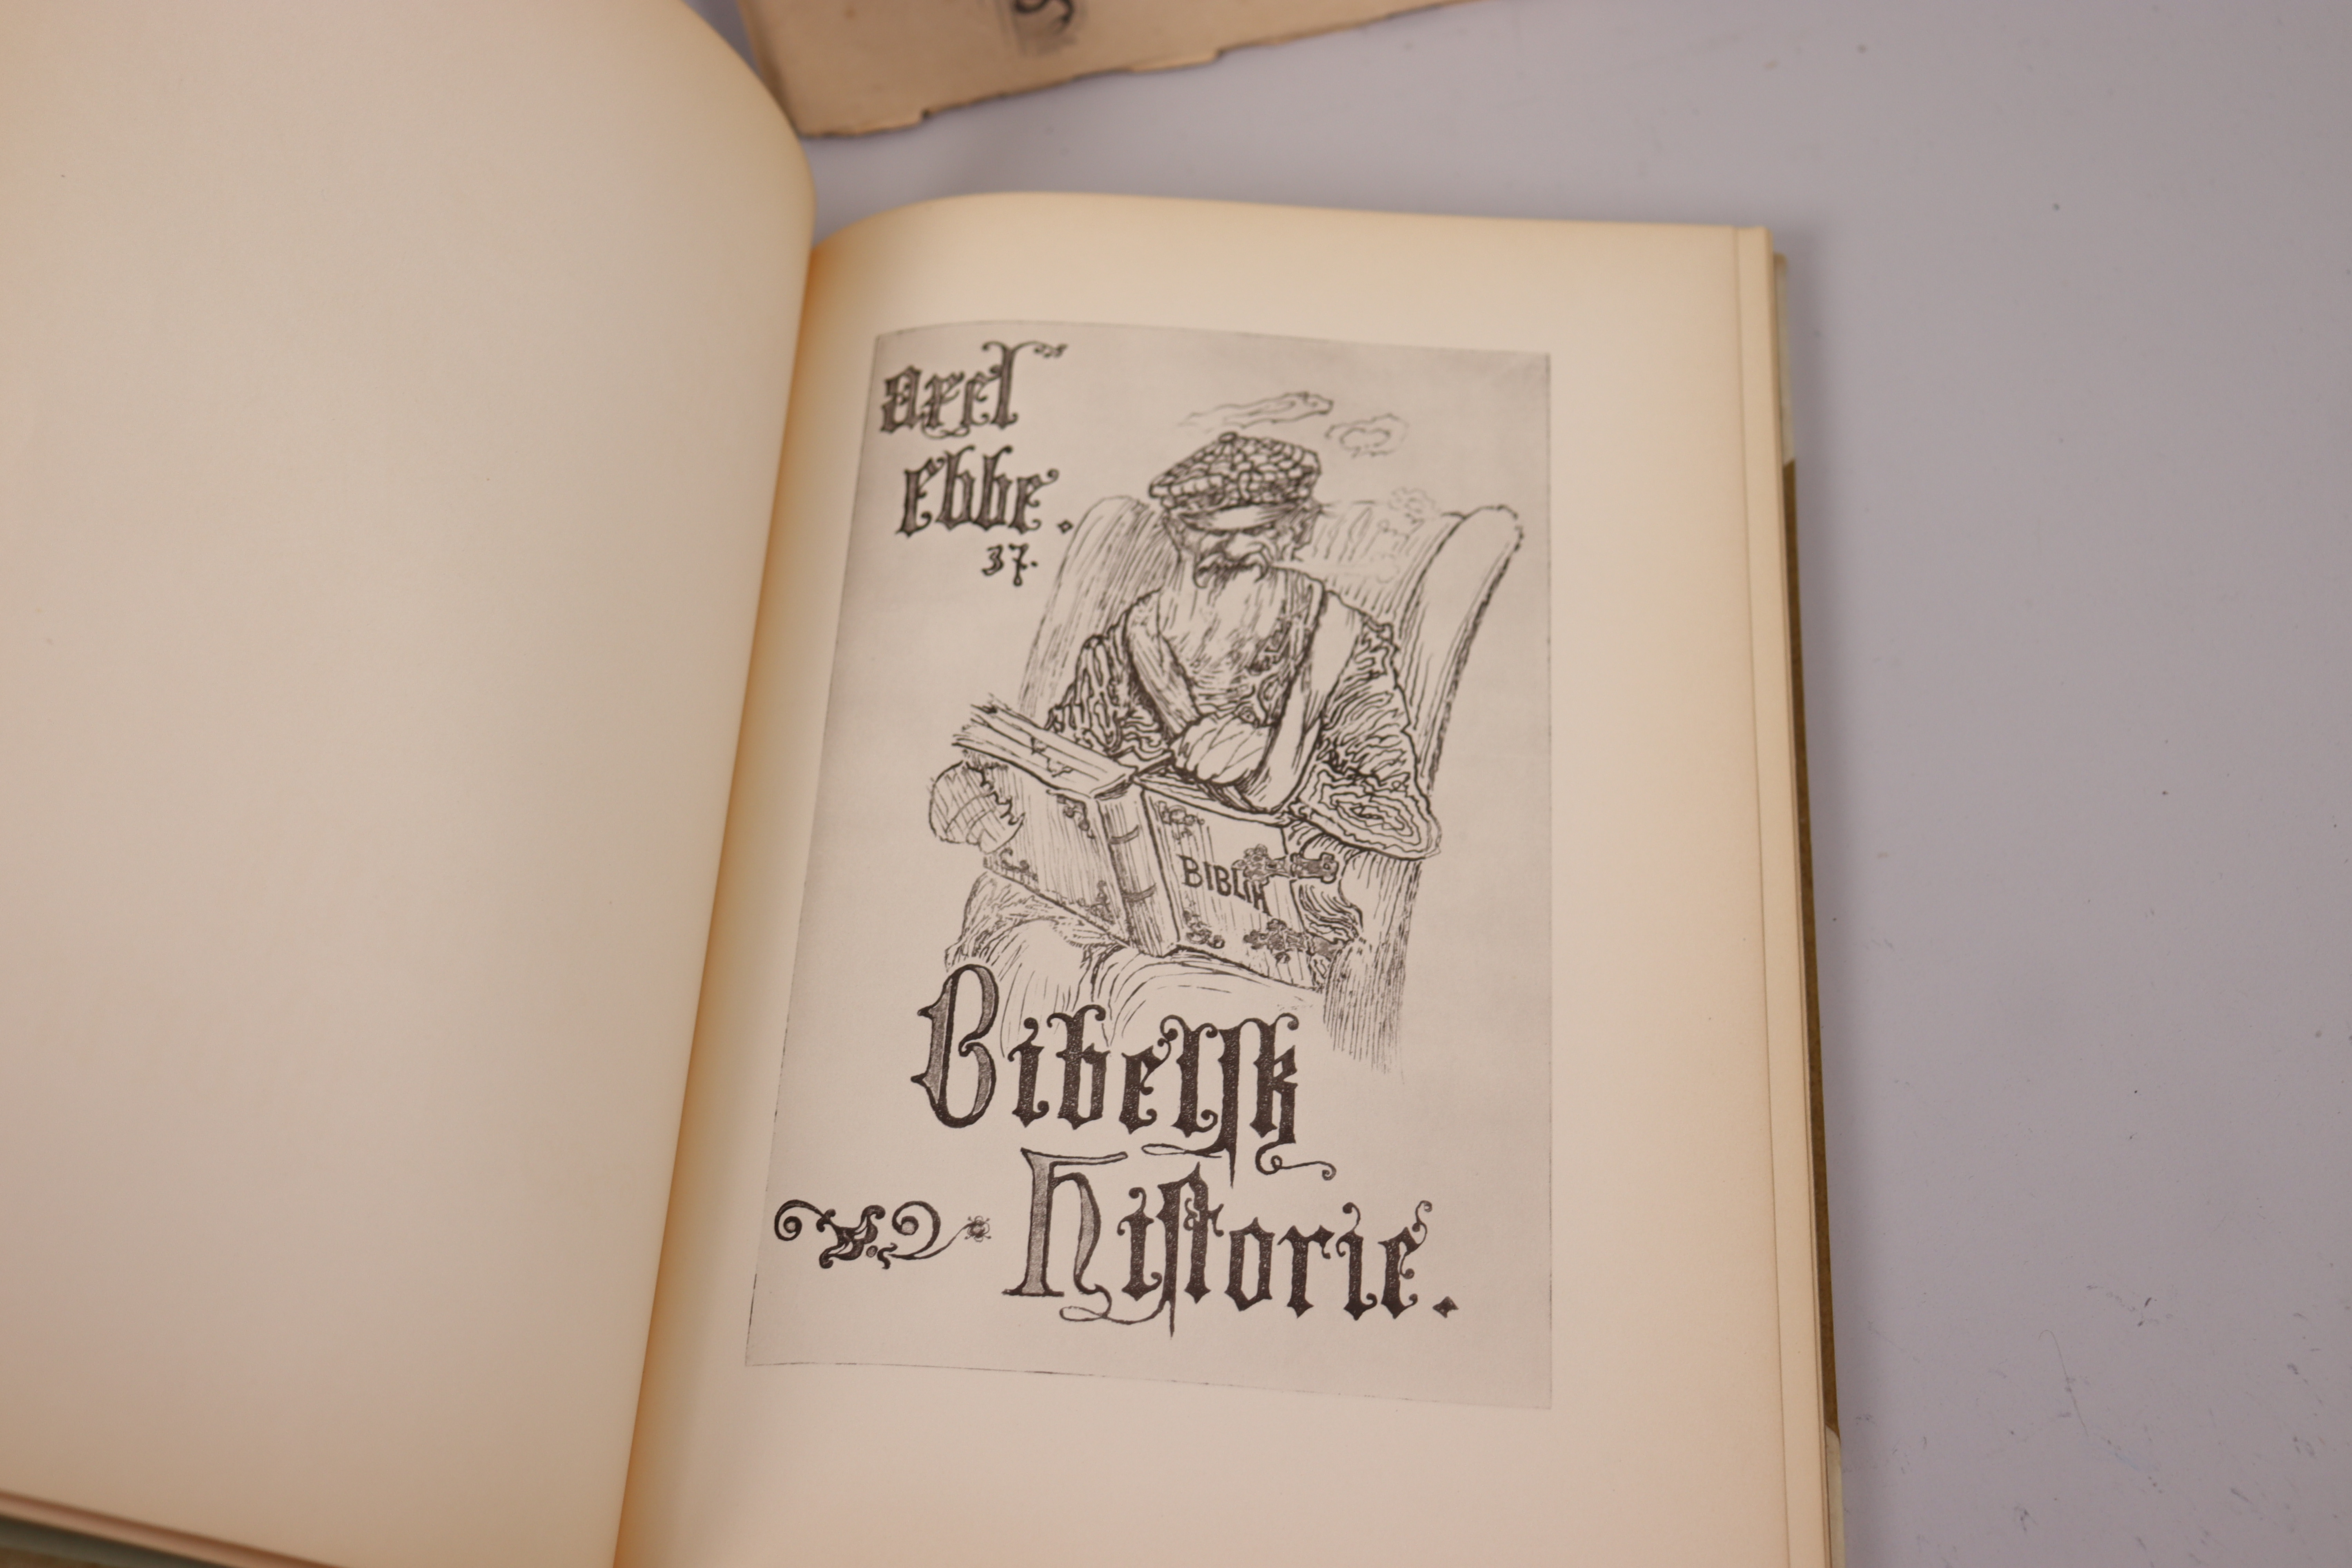 axel
ebbe.
37.
BIBLIA
Bibelſk
Hiſtorie.